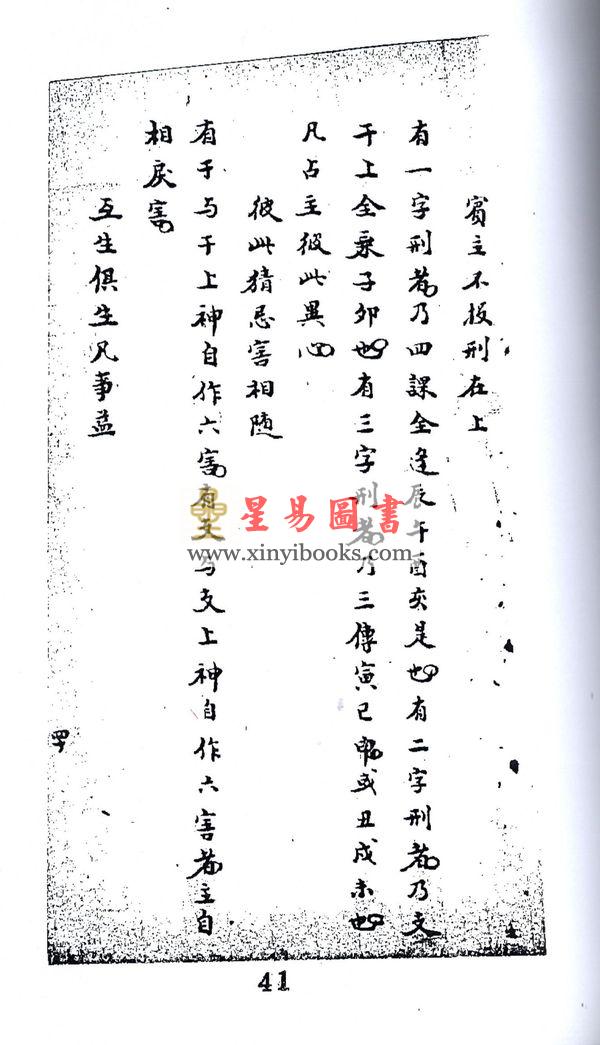 賓主不投刑在上
有一字刑者乃四課全逢辰午酉亥是也有二字刑者乃支
干上全乘子卯也有三字刑者乃三傳寅巳申或丑戌未也
凡占主彼此異心
彼此猜忌害相随
有干与干上神自作六害有支与支上神自作六害者主自
相戾害
互生俱生凡事益
四十
41
星易圖書
www.xinyibooks.com